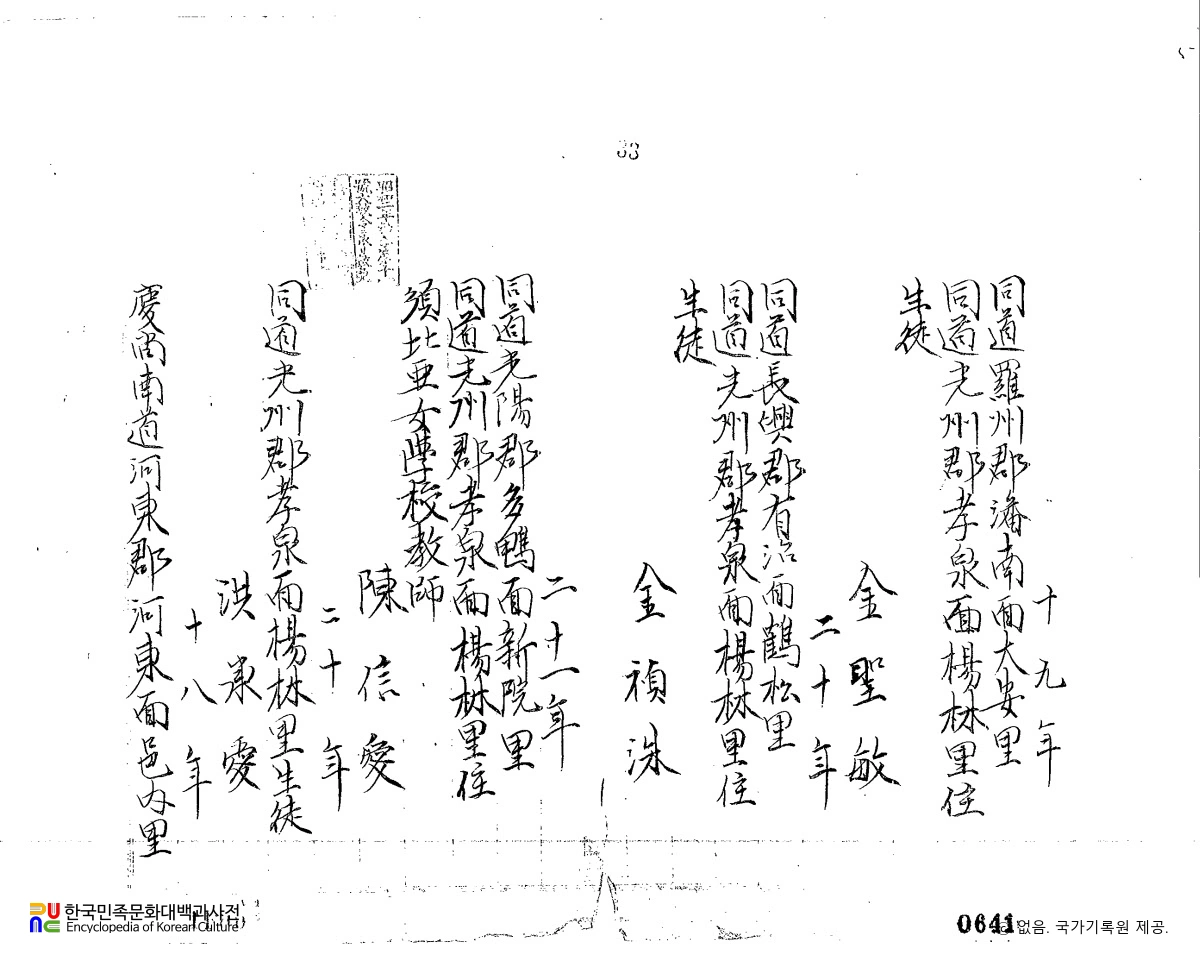 33
同道羅州郡潘南面大安里
同道光州郡孝泉面楊林里住
生徒
金聖敏
十九年
同道長興郡有治面鶴松里
同道光州郡孝泉面楊林里住
生徒
金禎洙
二十年
同道光陽郡多鴨面新院里
同道光州郡孝泉面楊林里住
須比亜女學校教師
陳信愛
二十一年
同道光州郡孝泉面楊林里生徒
洪承愛
二十年
慶尚南道河東郡河東面邑内里
十八年
한국민족문화대백과사전
Encyclopedia of Korean Culture
0641
없음. 국가기록원 제공.